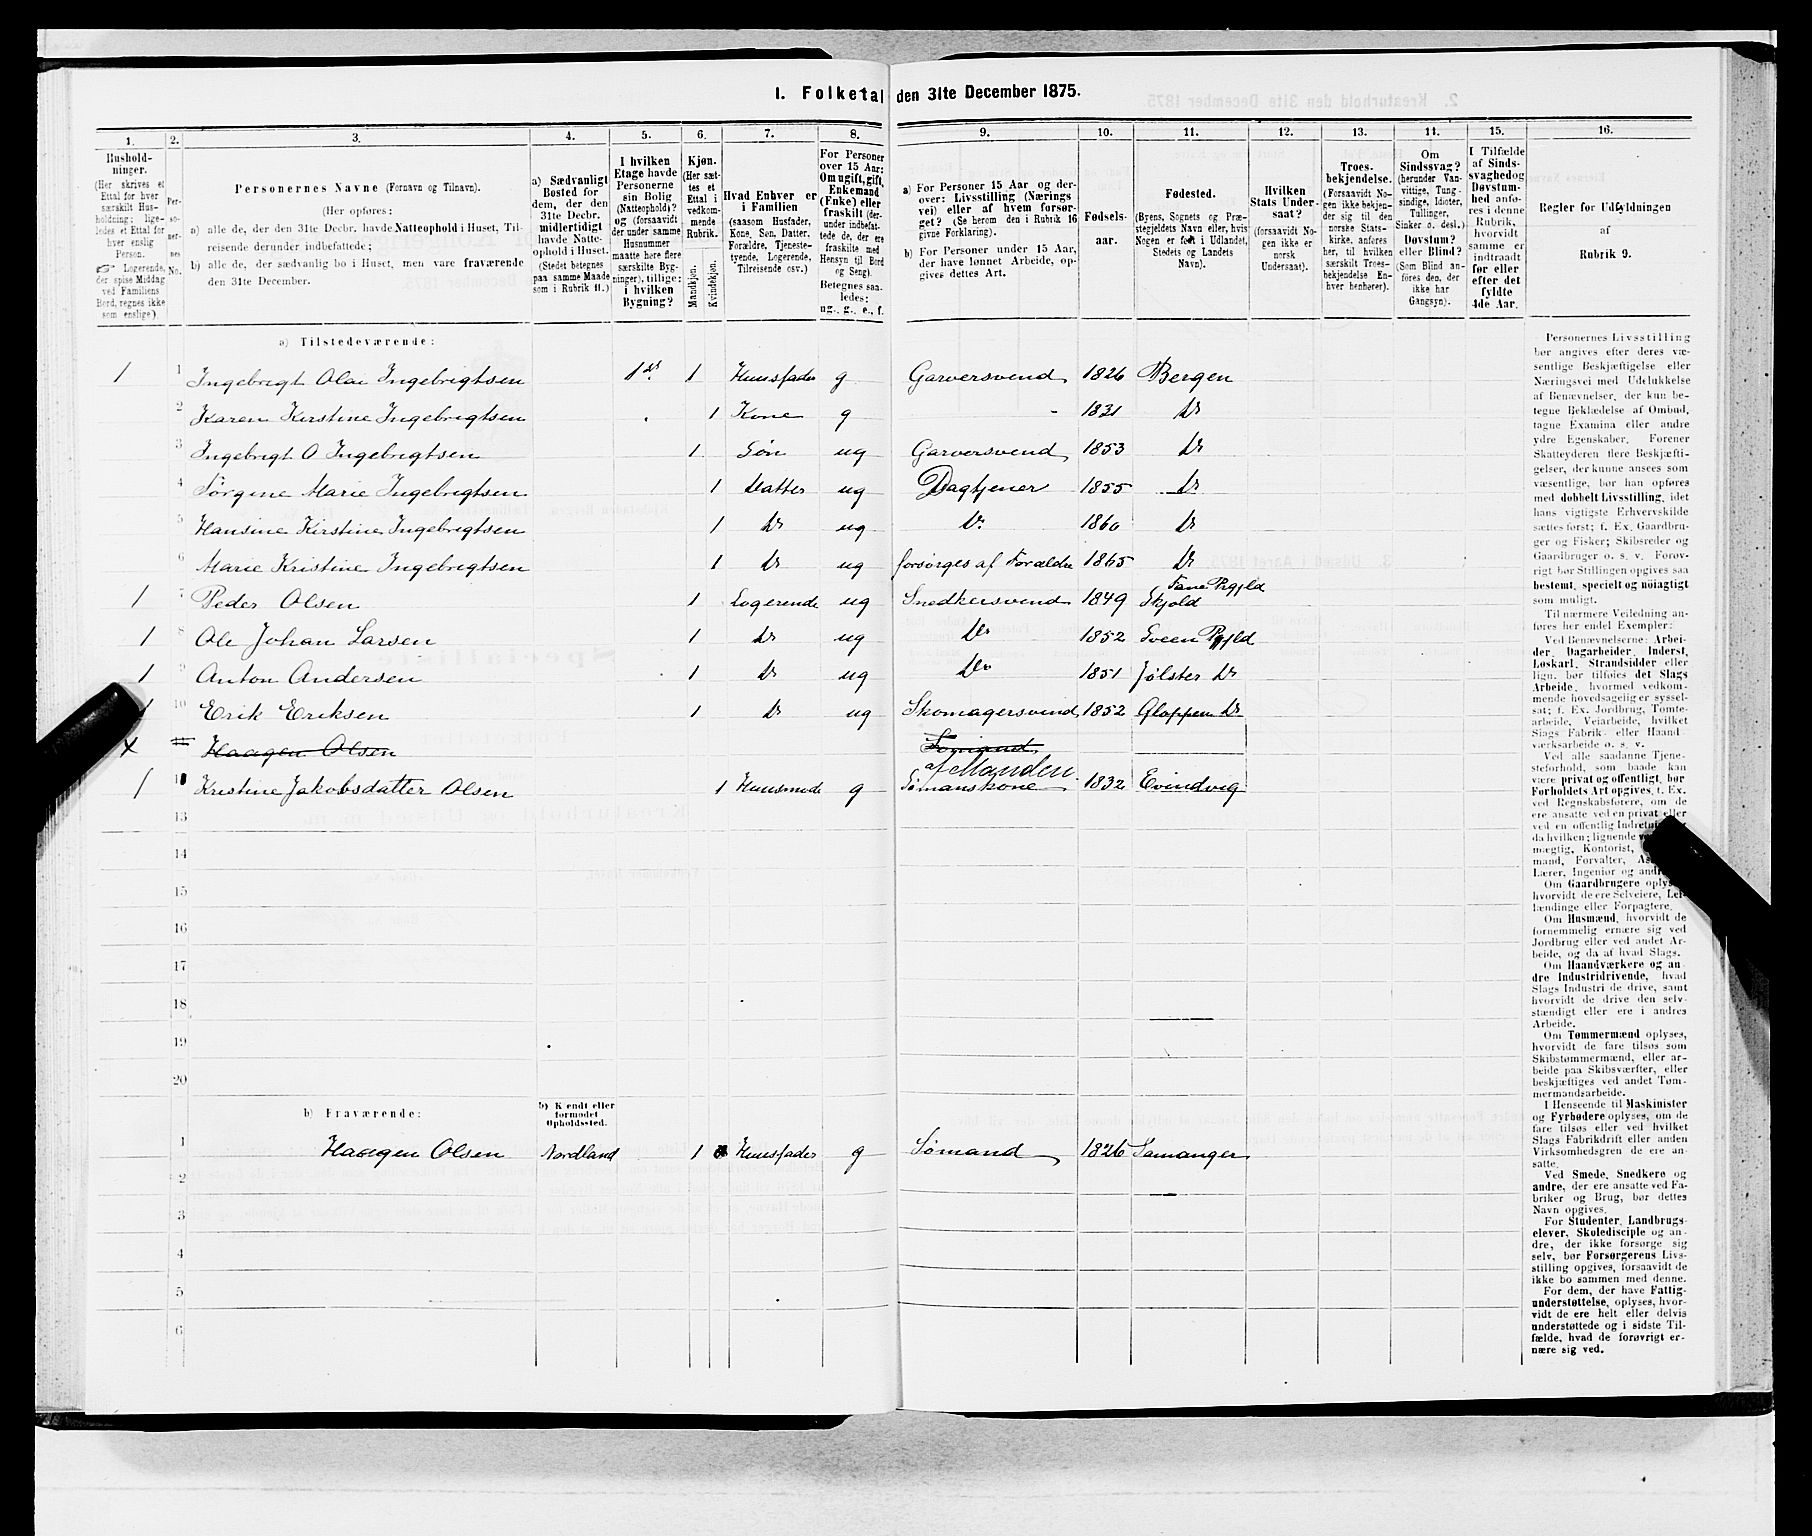 1. Folketal den 31te December 1875.
1. 2. 3. 4. 5. 6. 7. 8. 9. 10. 11. 12. 13. 14. 15. 16.
Hushold-
ninger.
(Her skrives et
Ettal for hver
særskilt Hus-
holdning; lige-
ledes et Ettal for
hver enslig
Person.
Logerende,
der spise Middag
ved Familiens
Bord, regnes ikke
som enslige).
Per-
so-
ner-
nes
No.
Personernes Navne (Fornavn og Tilnavn).
(Her opføres:
a) alle de, der den 31te Decbr. havde Natteophold i Huset, Til-
reisende derunder indbefattede;
b) alle de, der sædvanlig bo i Huset, men vare fraværende
den 31te December.
a) Sædvanligt
Bosted for
dem, der den
31te Decbr.
midlertidigt
havde Natte-
ophold i Huset.
(Stedet betegnes
paa samme Maade
som i Rubrik 11.)
I hvilken
Etage havde
Personerne
sin Bolig
(Natteophold)?
og (forsaavidt
der under samme
Husnummer
maatte høre flere
særskilte Byg-
ninger), tillige:
i hvilken
Bygning?
Kjøn.
(Her sæt-
tes et
Ettal i
vedkom-
mende
Rubrik.
Mandkjøn.
Kvindekjøn.
Hvad Enhver er
i Familien
(saasom Husfader,
Kone, Søn, Datter,
Forældre, Tjeneste-
tyende, Logerende,
Tilreisende osv.)
For Personer
over 15 Aar:
Om ugift, gift,
Enkemand
(Enke) eller
fraskilt (der-
under indbefat-
tede de, der ere
fraskilte med
Hensyn til Bord
og Seng).
Betegnes saa-
ledes:
ug., g., e., f.
a) For Personer 15 Aar og der-
over: Livsstilling (Nærings
vei) eller af hvem forsør-
get? (Se herom den i Rubrik 16
givne Forklaring).
b) For Personer under 15 Aar,
der have lønnet Arbeide, op-
gives dettes Art.
Fødsels-
aar.
Fødested.
(Byens, Sognets og Præ-
stegjeldets Navn eller, hvis
Nogen er født i Udlandet,
Stedets og Landets
Navn).
Hvilken
Stats Under-
saat?
(forsaavidt No-
gen ikke er
norsk
Undersaat).
Troes-
bekjendelse.
(Forsaavidt No-
gen ikke bekjen-
der sig til den
norske Stats-
kirke, anføres
her, til hvilken
særskilt Troes-
bekjendelse En-
hver henhører).
Om
Sindssvag?
(herunder Van-
vittige, Tung-
sindige, Idioter,
Tullinger,
Sinker o. desl.)
Døvstum?
eller Blind?
(Som Blind an-
føres den, der
ikke har
Gangsyn).
I Tilfælde
af Sinds-
svaghed og
Døvstum-
hed anfø-
res i denne
Rubrik,
hvorvidt
samme er
indtraadt
før eller
efter det
fyldte
4de Aar.
Regler for Udfyldningen
af
Rubrik 9.
a) Tilstedeværende:
1 1 Ingebrigt Olai Ingebrigtsen 1 st. 1 Huusfader g Garversvend 1826 Bergen
2 Karen Kirstine Ingebrigtsen 1 Kone g - 1831 Do
3 Ingebrigt O Ingebrigtsen 1 Søn ug Garversvend 1853 Do
4 Jørgine Marie Ingebrigtsen 1 Datter ug Dagtjener 1855 Do
5 Hansine Kirstine Ingebrigtsen 1 Do ug Do 1860 Do
6 Marie Kristine Ingebrigtsen 1 Do ug forsørges af Forældre 1865 Do
1 7 Peder Olsen 1 Logerende ug Snedkersvend 1849 Skjold Fane Prgjld
1 8 Ole Johan Larsen 1 Do ug Do 1852 Sveen Prgjld
1 9 Anton Andersen 1 Do ug Do 1851 Jølster Do
1 10 Erik Eriksen 1 Do ug Skomagersvend 1852 Gloppen Do
x Haagen Olsen Sømand
1 Kristine Jakobsdatter Olsen 1 Huusmode g Sømanskone af Manden 1832 Evindvig
13
14
15
16
17
18
19
20
b) Fraværende:
b) Kendt eller
formodet
Opholdssted.
1 Haagen Olsen Nordland 1 Huusfader g Sømand 1826 Samanger
2
3
4
5
6
Personernes Livsstilling
bør angives efter deres væ-
sentlige Beskjæftigelse eller
Næringsvei med Udelukkelse
af Benævnelser, der kun be-
tegne Beklædelse af Ombud,
tagne Examina eller andre
ydre Egenskaber. Forener
Skatteyderen flere Beskjæfti-
gelser, der kunne ansees som
væsentlige, bør han opføres
med dobbelt Livsstilling, idet
hans vigtigste Erhvervskilde
sættes først; f. Ex. Gaardbru-
ger og Fisker; Skibsreder og
Gaardbruger o. s. v. Forøv-
rigt bør Stillingen opgives saa
bestemt, specielt og nöiagtigt
som muligt.
Til nærmere Veiledning an-
føres her endel Exempler:
Ved Benævnelserne: Arbei-
der, Dagarbeider, Inderst,
Løskarl, Strandsidder eller
lign. bør tilføies det Slags
Arbeide, hvormed vedkom-
mende hovedsagelig er syssel-
sat; f. Ex. Jordbrug, Tømte-
arbeide, Veiarbeide, hvilket
Slags Fabrik- eller Haand-
værksarbeide o. s. v.
Ved alle saadanne Tjene-
steforhold, som baade kan
være privat og offentligt, bør
Forholdets Art opgives, f. Ex.
ved Regnskabsførere, om de
ere ansatte ved en privat eller
ved en offentlig Indretning og
da hvilken; lignende
mægtig, Kontorist,
mand, Forvalter,
Lærer, Ingeniør og andre
Om Gaardbrugere oplyses,
hvorvidt de ere Selveiere, Lei-
lændinge eller Forpagtere.
Om Husmænd, hvorvidt de
fornemmelig ernære sig ved
Jordbrug eller ved andet Ar-
beide, og da af hvad Slags.
Om Haandværkere og an-
dre Industridrivende, hvad
Slags Industri de drive, samt
hvorvidt de drive den selv-
stændigt eller ere i andres
Arbeide.
Om Tømmermænd oplyses,
hvorvidt de fare tilsøs som
Skibstømmermænd, eller ar-
beide paa Skibsværfter, eller
beskjæftiges ved andet Tøm-
mermandsarbeide.
I Henseende til Maskinister
og Fyrbødere oplyses, om de
fare tilsøs eller ved hvilket
Slags Fabrikdrift eller anden
Virksomhedsgren de ere an-
satte.
Ved Smede, Snedkere og
andre, der ere ansatte ved Fa-
briker og Brug, bør dettes
Navn opgives.
For Studenter, Landbrugs-
elever, Skoledisciple og an-
dre, der ikke forsørge sig
selv, bør Forsørgerens Livs-
stilling opgives, forsaavidt de
ikke bo sammen med denne.
For dem, der have Fattig-
understøttelse, oplyses, hvor-
vidt de ere helt eller delvis
understøttede og i sidste Til-
fælde, hvad de forøvrigt er-
nære sig ved.